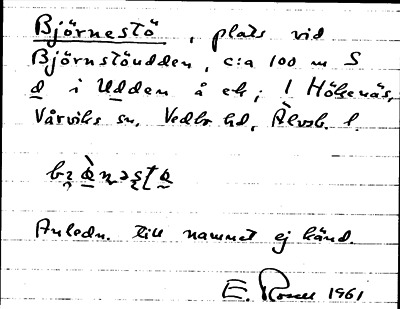 Björnestö, plats vid
Björnstöudden, c:a 100 m S
d i Udden å ek; 1 Höksnäs,
Vårviks sn, Vedbo hd, Älvsb. l.
Anledn. till namnet ej känd.
E. 1961